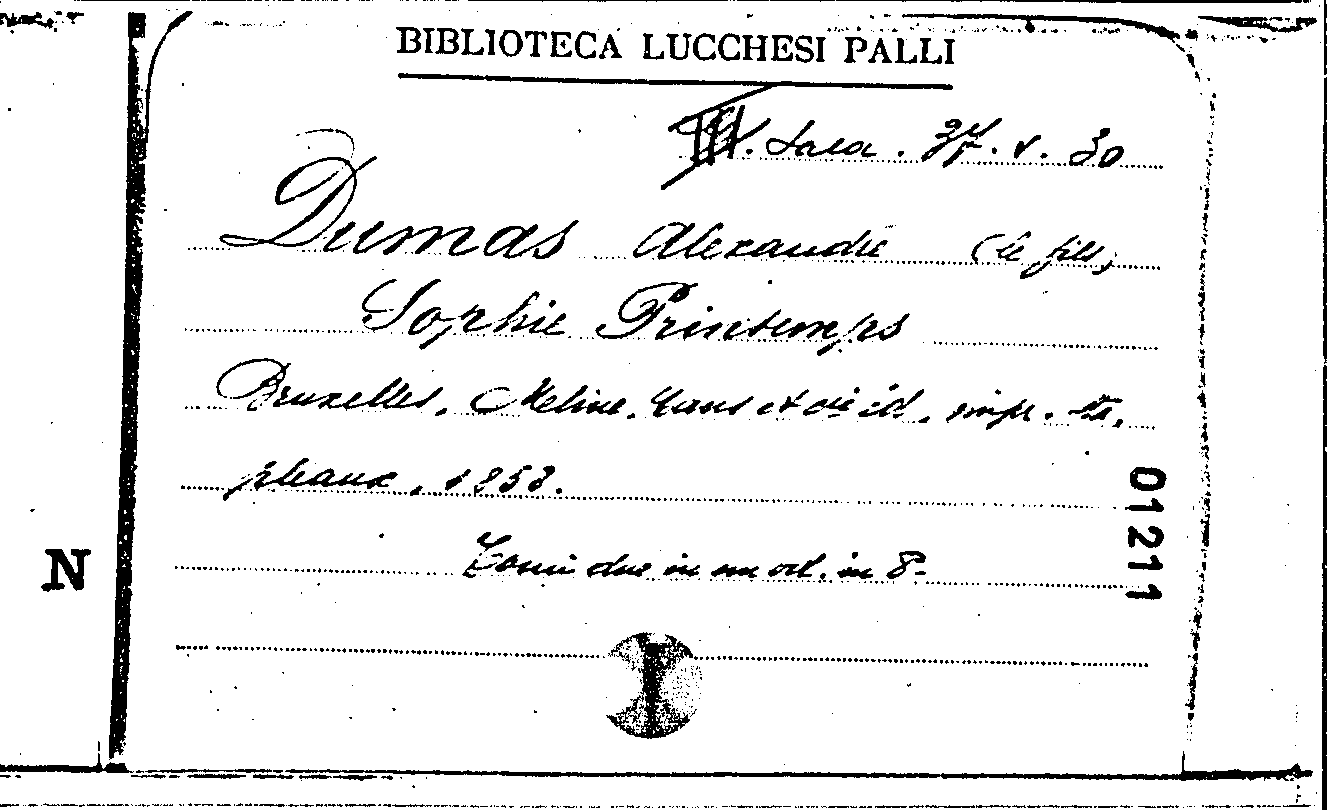 BIBLIOTECA LUCCHESI PALLI
Sala. 37. V. 30
Dumas Alexandre (le fils)
Sophie Printemps
Bruxelles, Meline, Cans et Cie éd., impr. Sta,
pleaux, 1853.
01211
N
Tomi due in un vol. in 8-